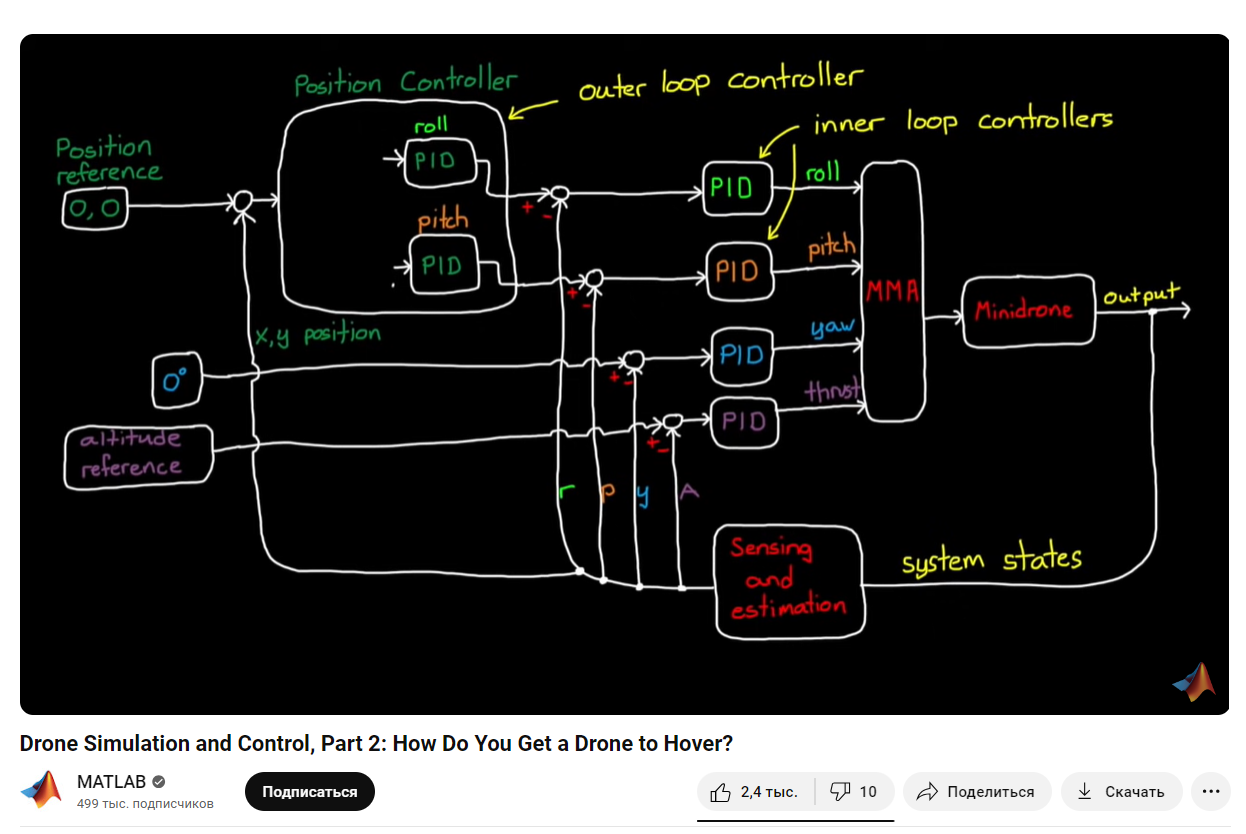 Position Controller
outer loop controller
roll
PID
inner loop controllers
Position
reference
0, 0
PID
roll
pitch
PID
+ -
PID
pitch
+ -
MMA
Minidrone
output
x, y position
0°
+ -
PID
yaw
altitude
reference
+ -
PID
thrust
r
p
y
A
Sensing
and
estimation
system states
Drone Simulation and Control, Part 2: How Do You Get a Drone to Hover?
MATLAB
499 тыс. подписчиков
Подписаться
2,4 тыс.
10
Поделиться
Скачать